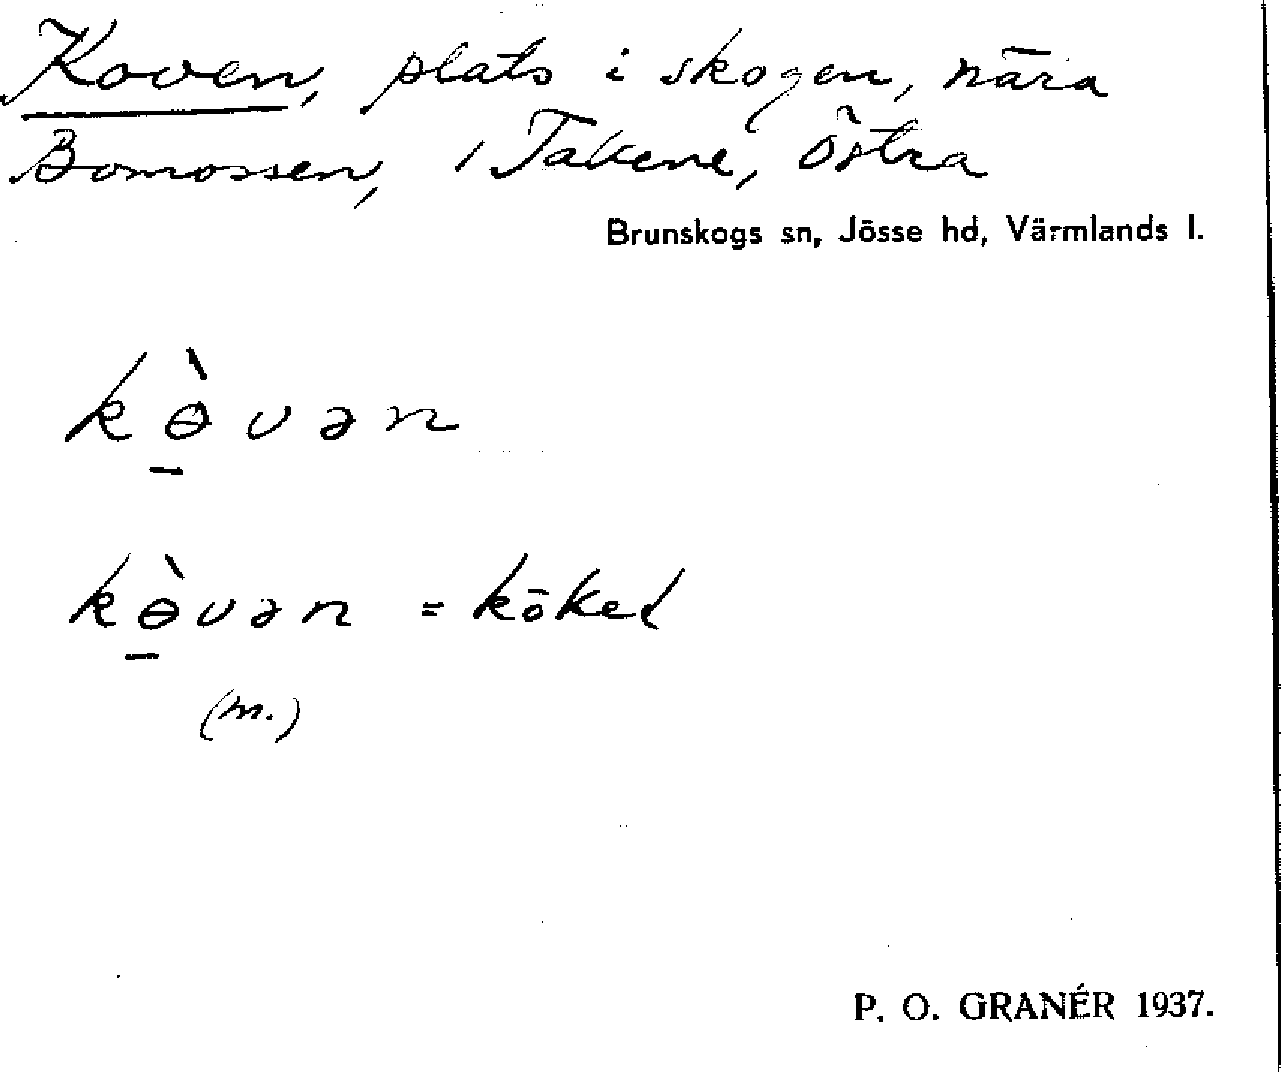 Koven, plats i skogen, nära
Bomossen, i Takene, Östra
Brunskogs sn, Jösse hd, Värmlands l.
kɵ̀vən
kɵ̀vən = köket
(m.)
P. O. GRANÉR 1937.